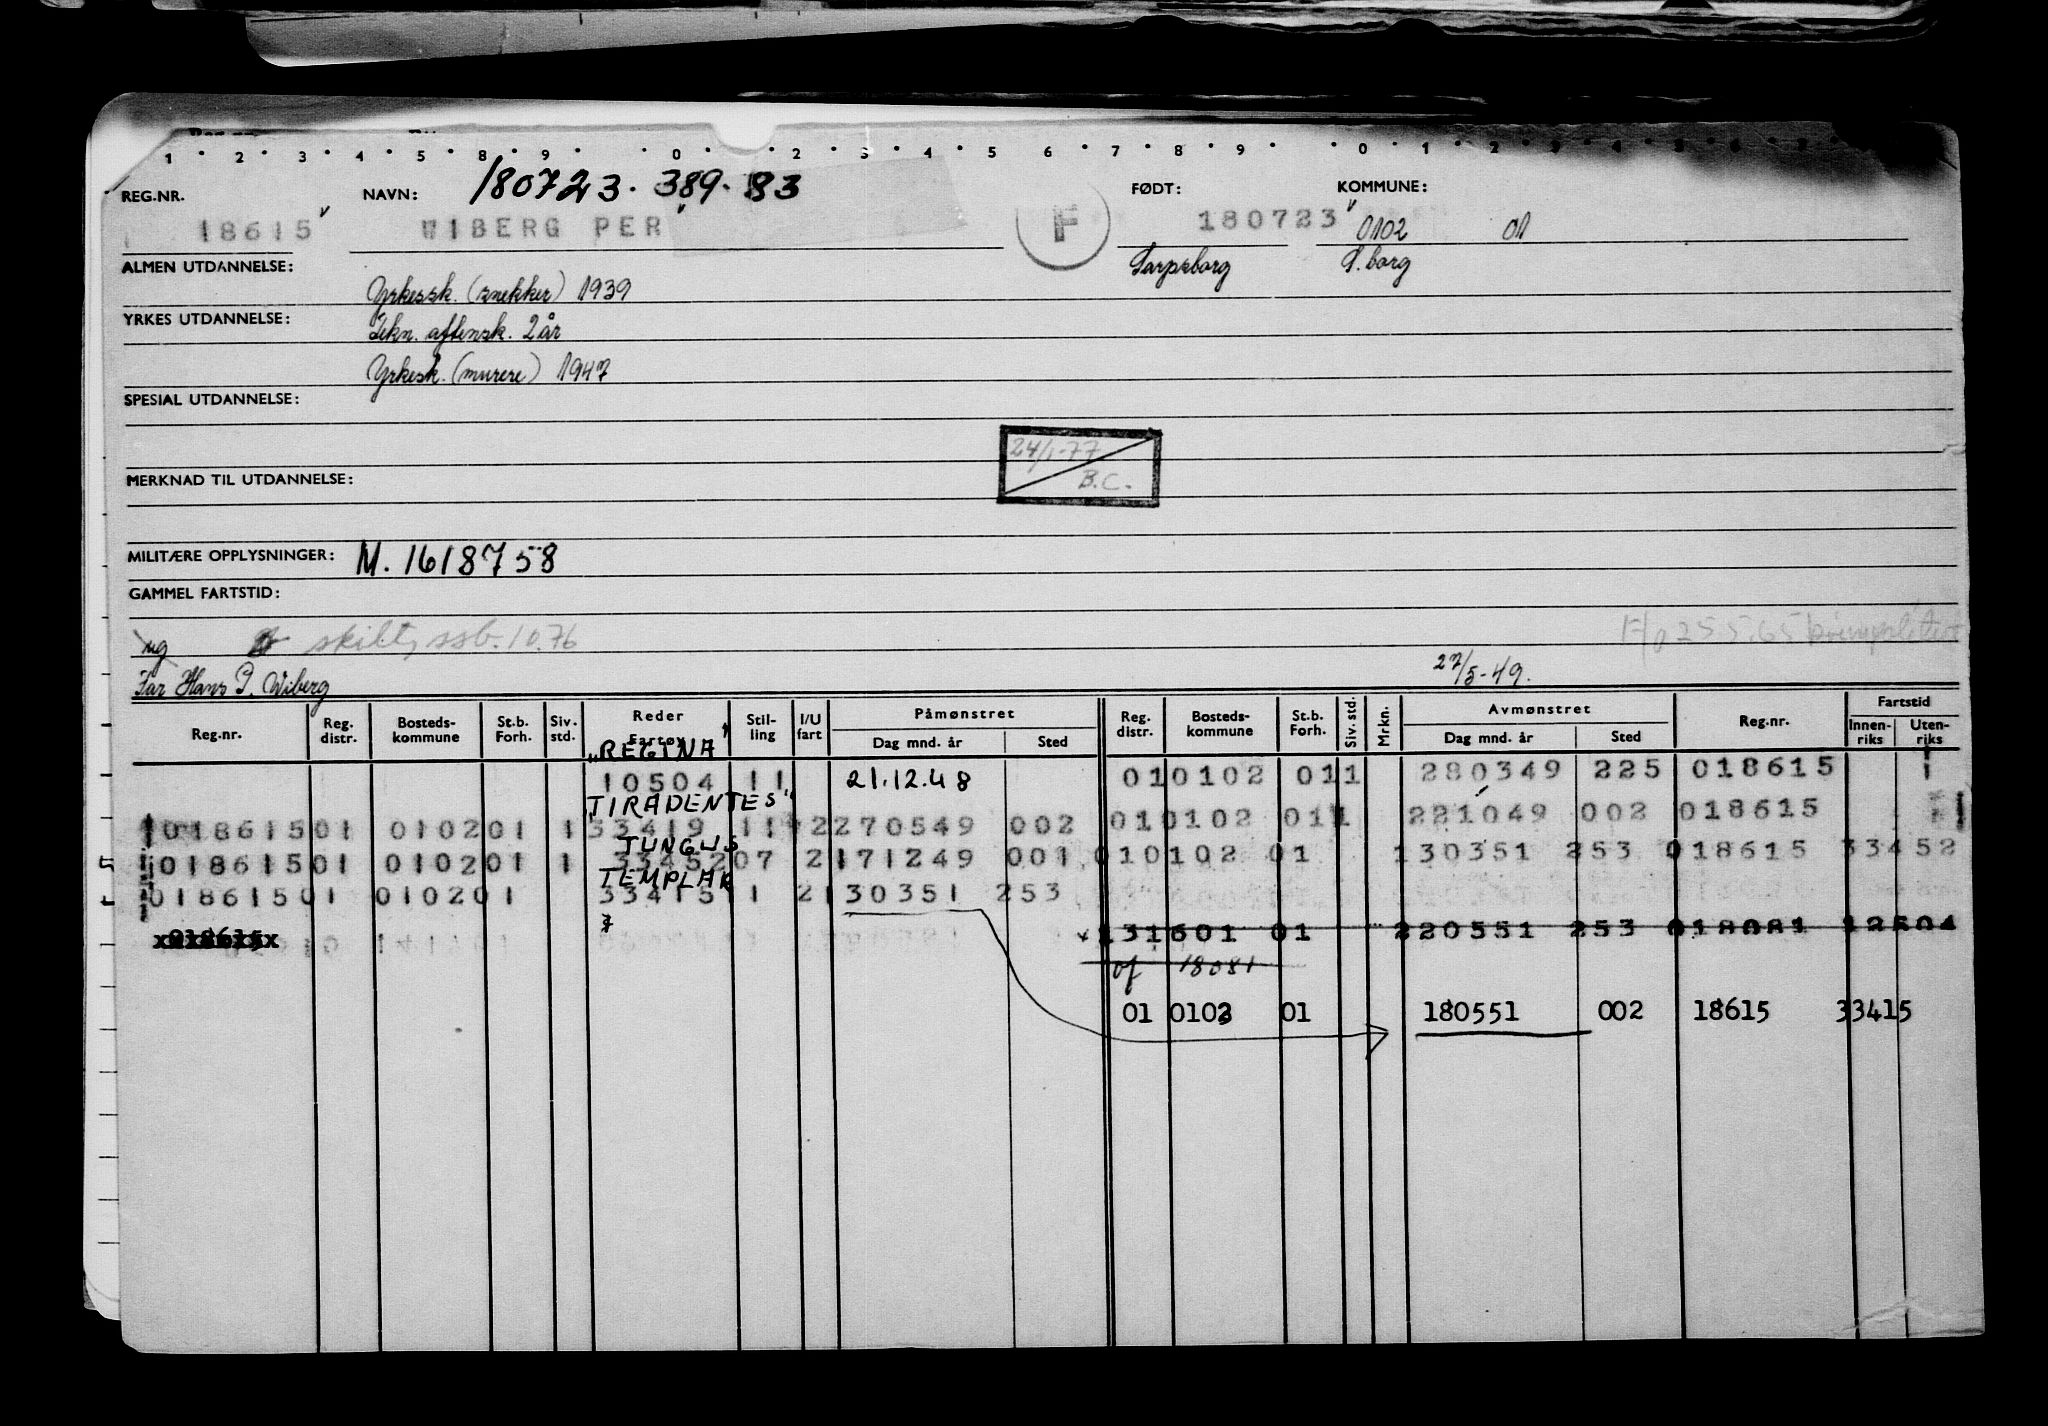 1 2 3 4 5 8 9 0 2 3 4 5 6 7 8 9 0 1 2 3 4 5 6
REG.NR. NAVN: 180723. 389. 83 FØDT: KOMMUNE:
18615 WIBERG PER F 180723 0102 01
ALMEN UTDANNELSE: Sarpsborg S. borg
Yrkessk. (snekker) 1939
YRKES UTDANNELSE: Tekn. aftensk. 2 år
Yrkesk. (murere) 1947
SPESIAL UTDANNELSE:
24/1-77
MERKNAD TIL UTDANNELSE: B.C.
MILITÆRE OPPLYSNINGER: M. 1618758
GAMMEL FARTSTID:
ug skilt, ssb. 10.76
Far Hans P. Wiberg 27/5-49.
Reg.nr. Reg. distr. Bosteds-kommune St.b. Forh. Siv. std. Reder Fartøy Stil-ling I/U fart Påmønstret Dag mnd. år Sted Reg. distr. Bosteds-kommune St.b. Forh. Siv. std. Mrkn. Avmønstret Dag mnd. år Sted Reg.nr. Fartstid Innen-riks Uten-riks
"REGINA"
10504 11 21.12.48 010102 011 280349 225 018615
"TIRADENTES"
018615 01 0102 01 1 33419 11 2 270549 002 010102 011 221049 002 018615
TUNGUS
018615 01 0102 01 1 33452 07 2 171249 001 010102 01 130351 253 018615 33452
TEMPLAR
018615 01 0102 01 33415 11 2 130351 253
018615 131601 01 220551 253 018081 12504
of 18081
01 0102 01 180551 002 18615 33415